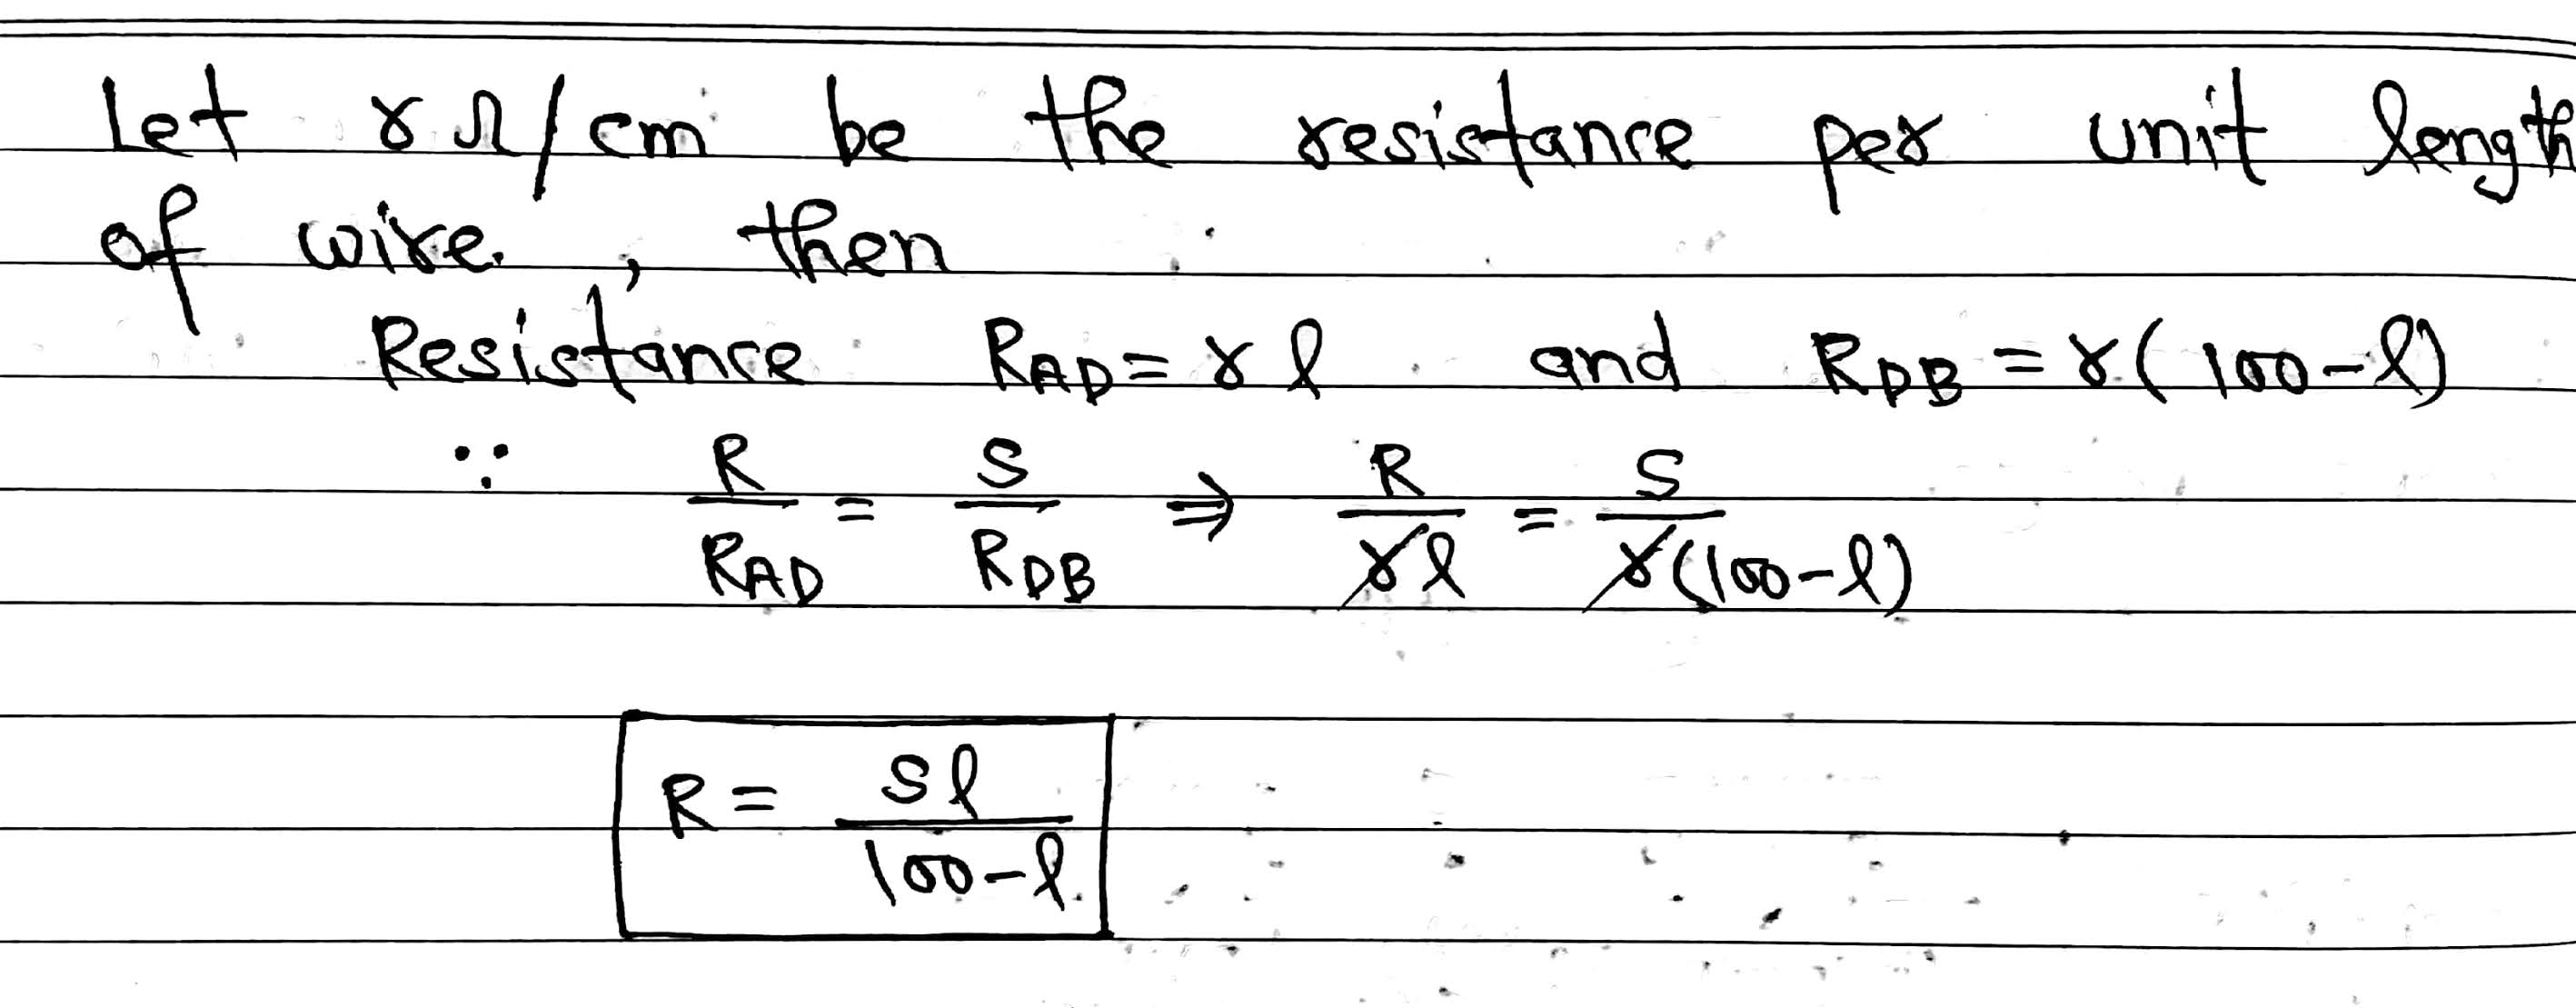 Let r Ω/cm be the resistance per unit length
of wire. , then
Resistance R_AD = r l and R_DB = r( 100-l)
∵ R/R_AD = S/R_DB ⇒ R/rl = S/r(100-l)
R = Sl/100-l